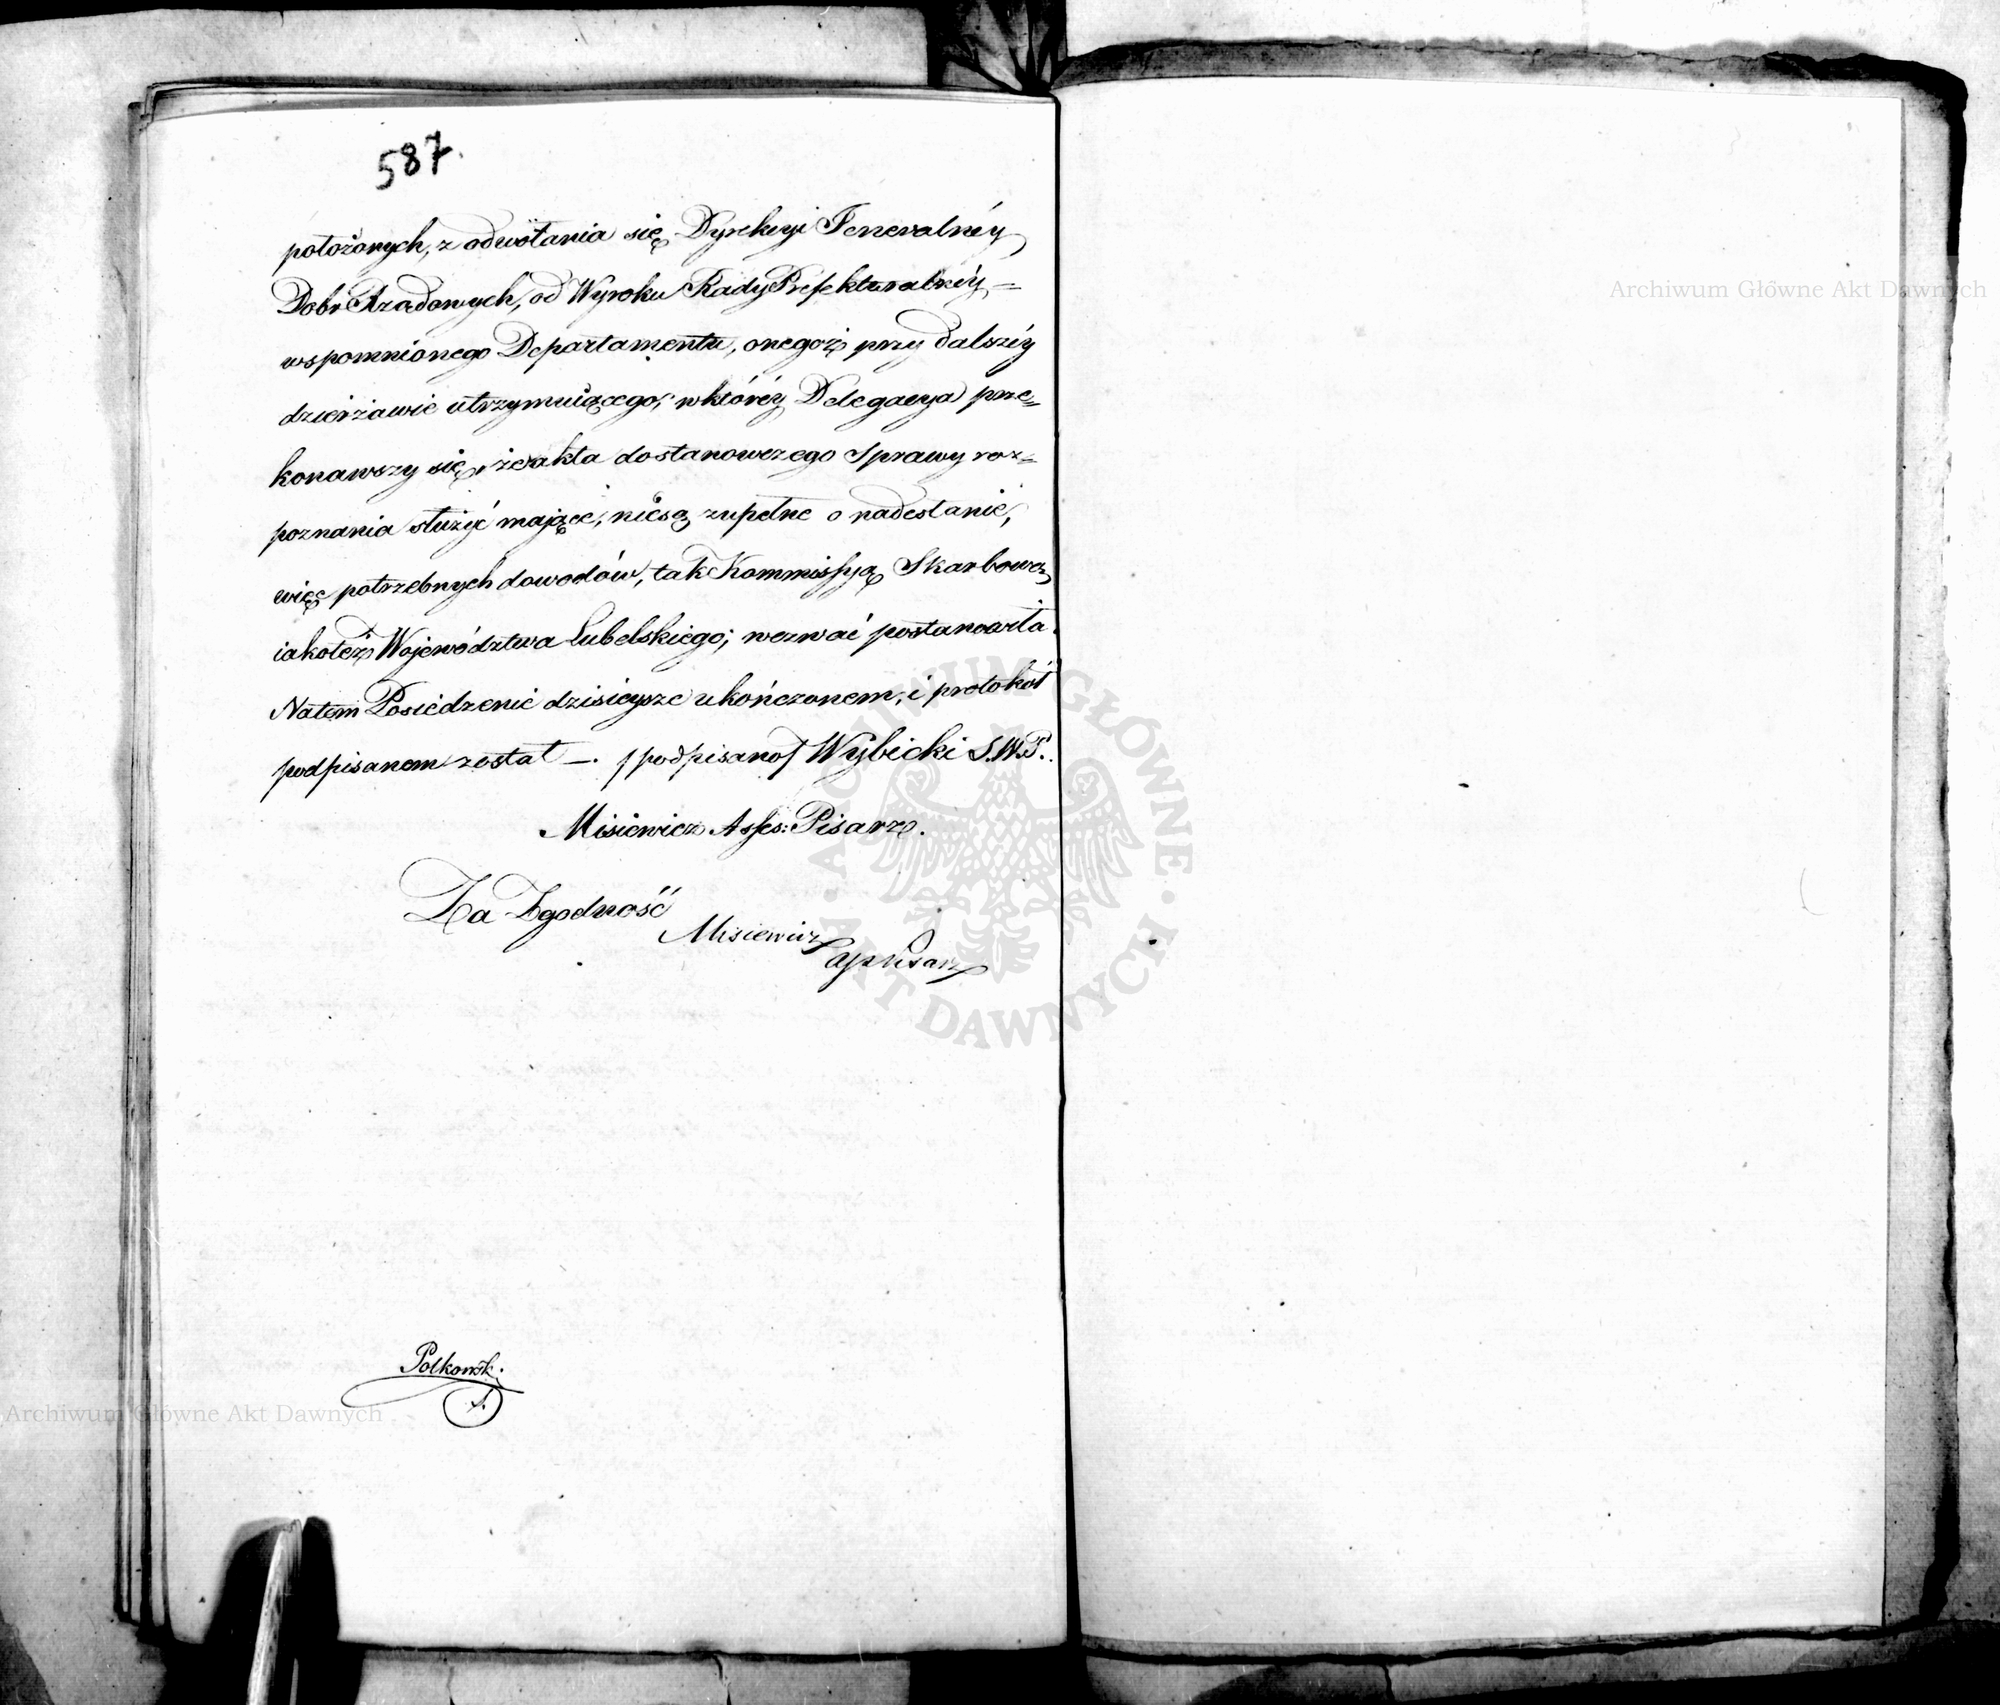 587.
położonych, z odwołania się Dyrekcyi Generalnéy
Dobr Rządowych, od Wyroku Rady Prefekturalnéy, —
wspomnionego Departamentu, onegoż przy dalszéy
dzierżawie utrzymuiącego; w któréy Delegacya prze=
konawszy się, że akta do stanowczego Sprawy roz=
poznania służyć maiące, nie są zupełne o nadesłanie,
więc potrzebnych dowodów, tak Kommissyą Skarbową
iakoteż Województwa Lubelskiego; wezwać postanowiła.
Na tem Posiedzenie dzisieysze ukończonem, i protokół
podpisanem został —. /podpisano/ Wybicki S.W.P.
Misiewicz Asses: Pisarz.
Za Zgodność
Misiewicz
Polkowsk:
Archiwum Główne Akt Dawnych
Archiwum Główne Akt Dawnych
ARCHIWUM GŁÓWNE AKT DAWNYCH